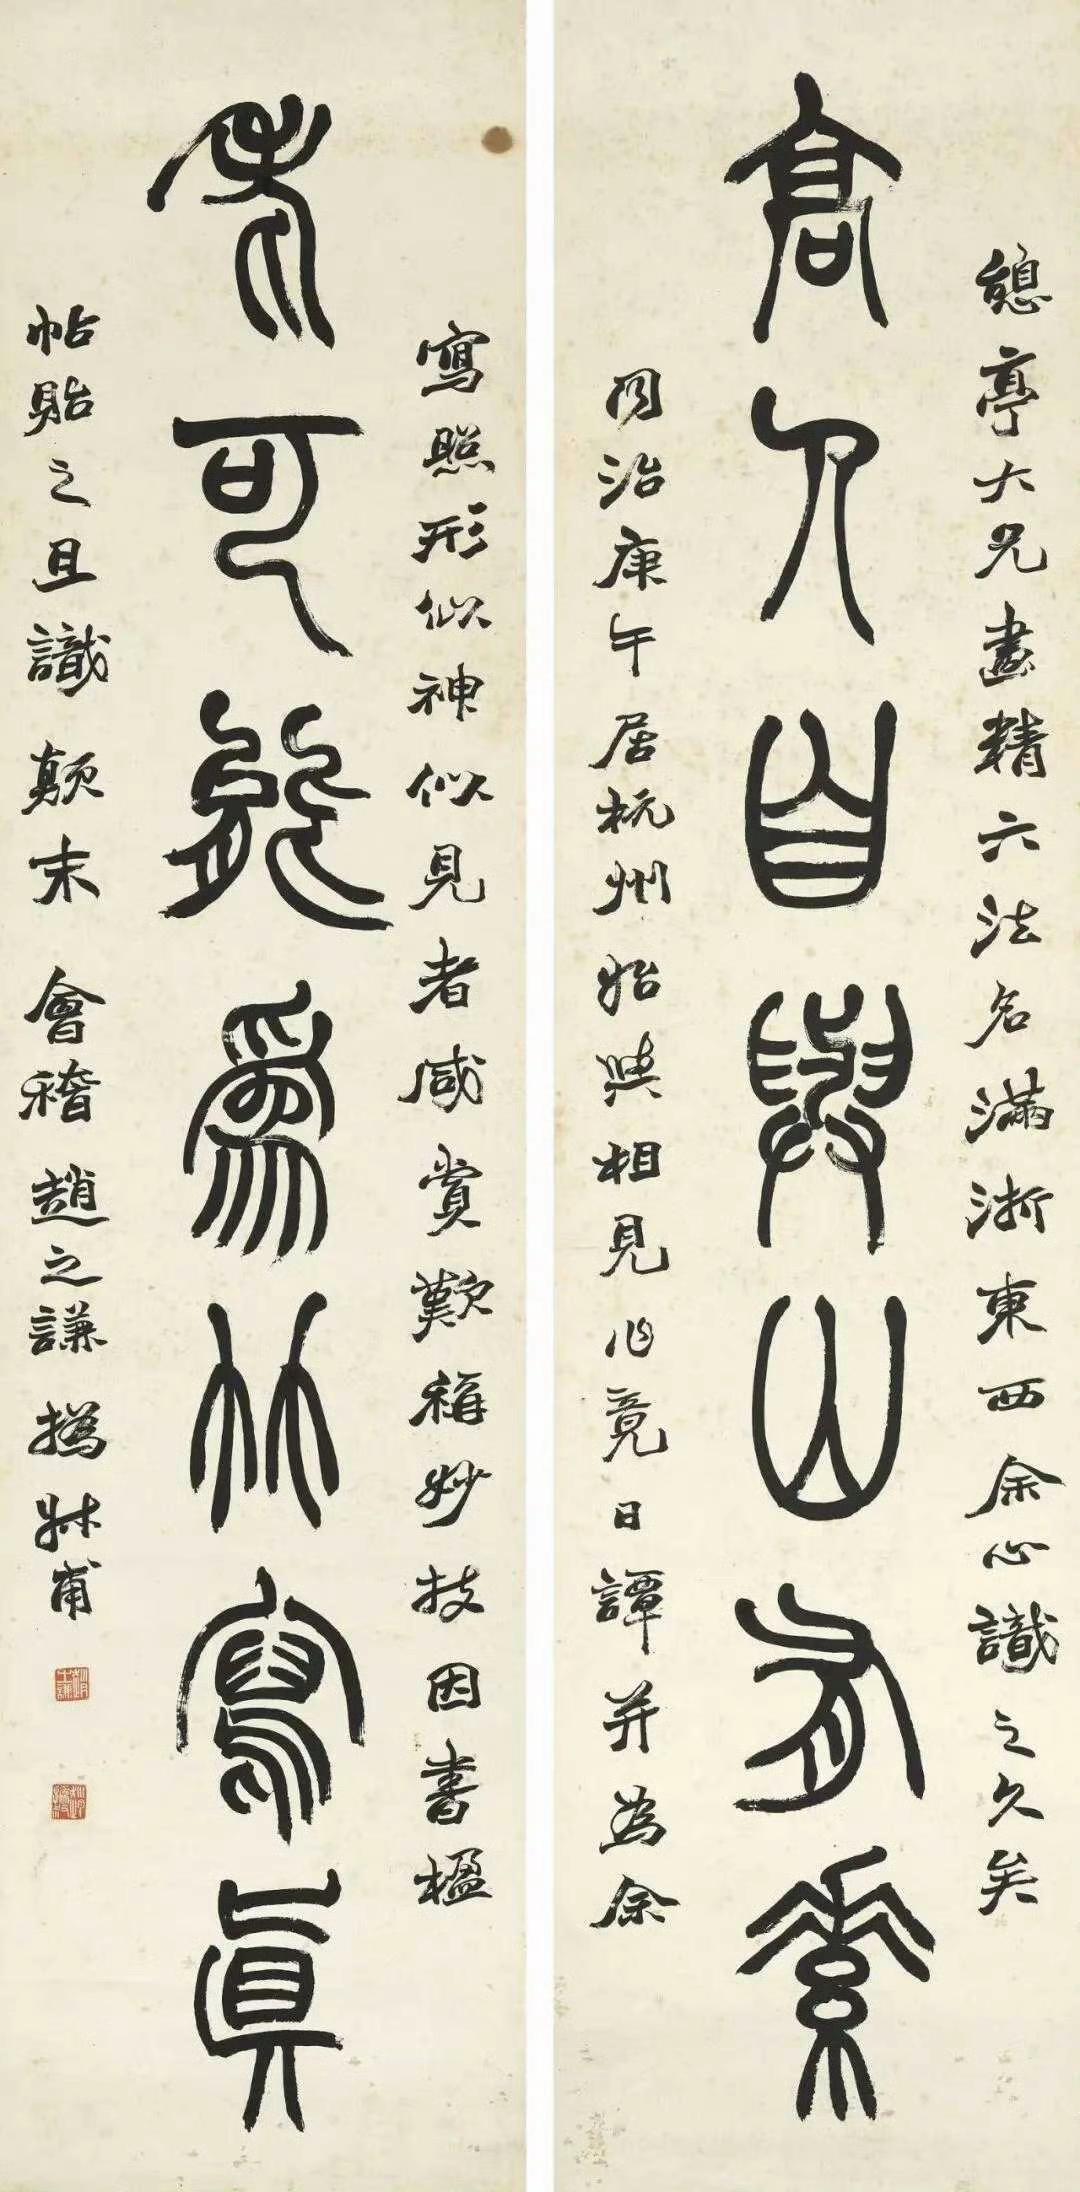 憩亭大兄畫精六法名滿浙東西余心識之久矣
高人自與山有素
同治庚午居杭州始與相見必竟日譚并為余
寫照形似神似見者咸賞歎稱妙技因書楹
老可能為竹寫真
帖貽之且識顛末 會稽趙之謙撝叔甫